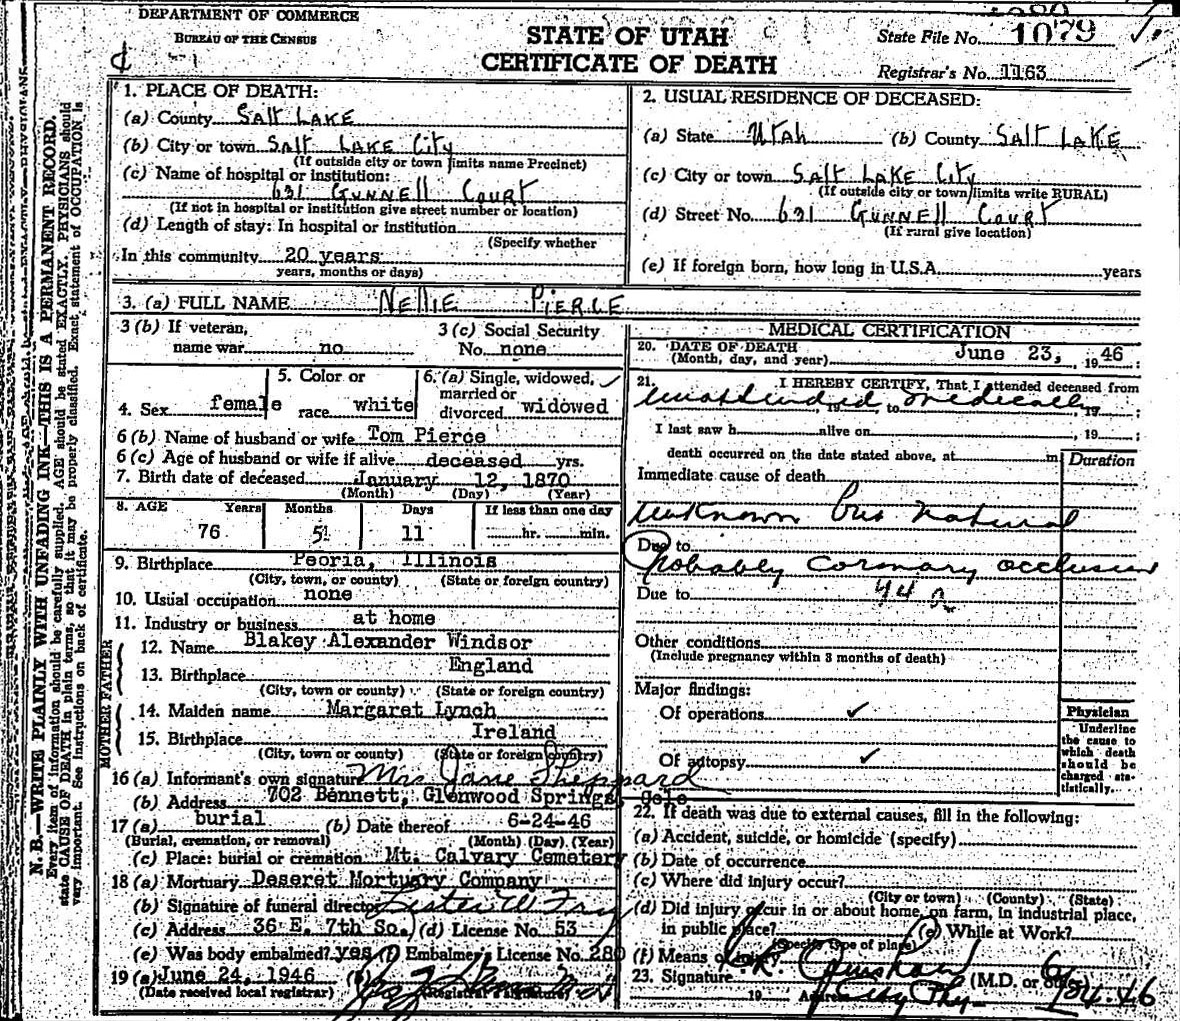 DEPARTMENT OF COMMERCE
BUREAU OF THE CENSUS
STATE OF UTAH
CERTIFICATE OF DEATH
State File No. 1079
Registrar's No. 1163
N. B.—WRITE PLAINLY WITH UNFADING INK—THIS IS A PERMANENT RECORD.
Every item of information should be carefully supplied. AGE should be stated EXACTLY. PHYSICIANS should
state CAUSE OF DEATH in plain terms, so that it may be properly classified. Exact statement of OCCUPATION is
very important. See instructions on back of certificate.
1. PLACE OF DEATH:
(a) County SALT LAKE
(b) City or town SALT LAKE City
(If outside city or town limits name Precinct)
(c) Name of hospital or institution:
631 GUNNELL COURT
(If not in hospital or institution give street number or location)
(d) Length of stay: In hospital or institution
(Specify whether
In this community 20 years
years, months or days)
2. USUAL RESIDENCE OF DECEASED:
(a) State Utah (b) County SALT LAKE
(c) City or town SALT LAKE City
(If outside city or town limits write RURAL)
(d) Street No. 631 GUNNELL COURT
(If rural give location)
(e) If foreign born, how long in U.S.A. years
3. (a) FULL NAME NELLIE PIERCE
3 (b) If veteran,
name war no
3 (c) Social Security
No. none
4. Sex female
5. Color or
race white
6. (a) Single, widowed,
married or
divorced widowed
6 (b) Name of husband or wife Tom Pierce
6 (c) Age of husband or wife if alive deceased yrs.
7. Birth date of deceased January 12, 1870
(Month) (Day) (Year)
8. AGE Years Months Days If less than one day
76 5 11 hr. min.
9. Birthplace Peoria, Illinois
(City, town, or county) (State or foreign country)
10. Usual occupation none
11. Industry or business at home
FATHER
12. Name Blakey Alexander Windsor
13. Birthplace England
(City, town or county) (State or foreign country)
MOTHER
14. Maiden name Margaret Lynch
15. Birthplace Ireland
(City, town or county) (State or foreign country)
16 (a) Informant's own signature Mrs Jane Sheppard
(b) Address 702 Bennett, Glenwood Springs, Colo
17 (a) burial (b) Date thereof 6-24-46
(Burial, cremation, or removal) (Month) (Day) (Year)
(c) Place: burial or cremation Mt. Calvary Cemetery
18 (a) Mortuary Deseret Mortuary Company
(b) Signature of funeral director
(c) Address 36 E. 7th So. (d) License No. 53
(e) Was body embalmed? yes (f) Embalmer's License No. 280
19 (a) June 24, 1946 (b)
(Date received local registrar) (Registrar's signature)
MEDICAL CERTIFICATION
20. DATE OF DEATH
(Month, day, and year) June 23, 1946
21. I HEREBY CERTIFY, That I attended deceased from
unattended medically, 19 , to , 19 ;
I last saw h alive on , 19 ;
death occurred on the date stated above, at m
Duration
Immediate cause of death
Unknown but natural
Due to
Probably coronary occlusion
Due to 94a
Other conditions
(Include pregnancy within 3 months of death)
Major findings:
Of operations ✓
Of autopsy ✓
Physician
Underline
the cause to
which death
should be
charged sta-
tistically.
22. If death was due to external causes, fill in the following:
(a) Accident, suicide, or homicide (specify)
(b) Date of occurrence
(c) Where did injury occur?
(City or town) (County) (State)
(d) Did injury occur in or about home, on farm, in industrial place,
in public place? (e) While at Work?
(Specify type of place)
(f) Means of injury
23. Signature (M.D. or other)
19 Address